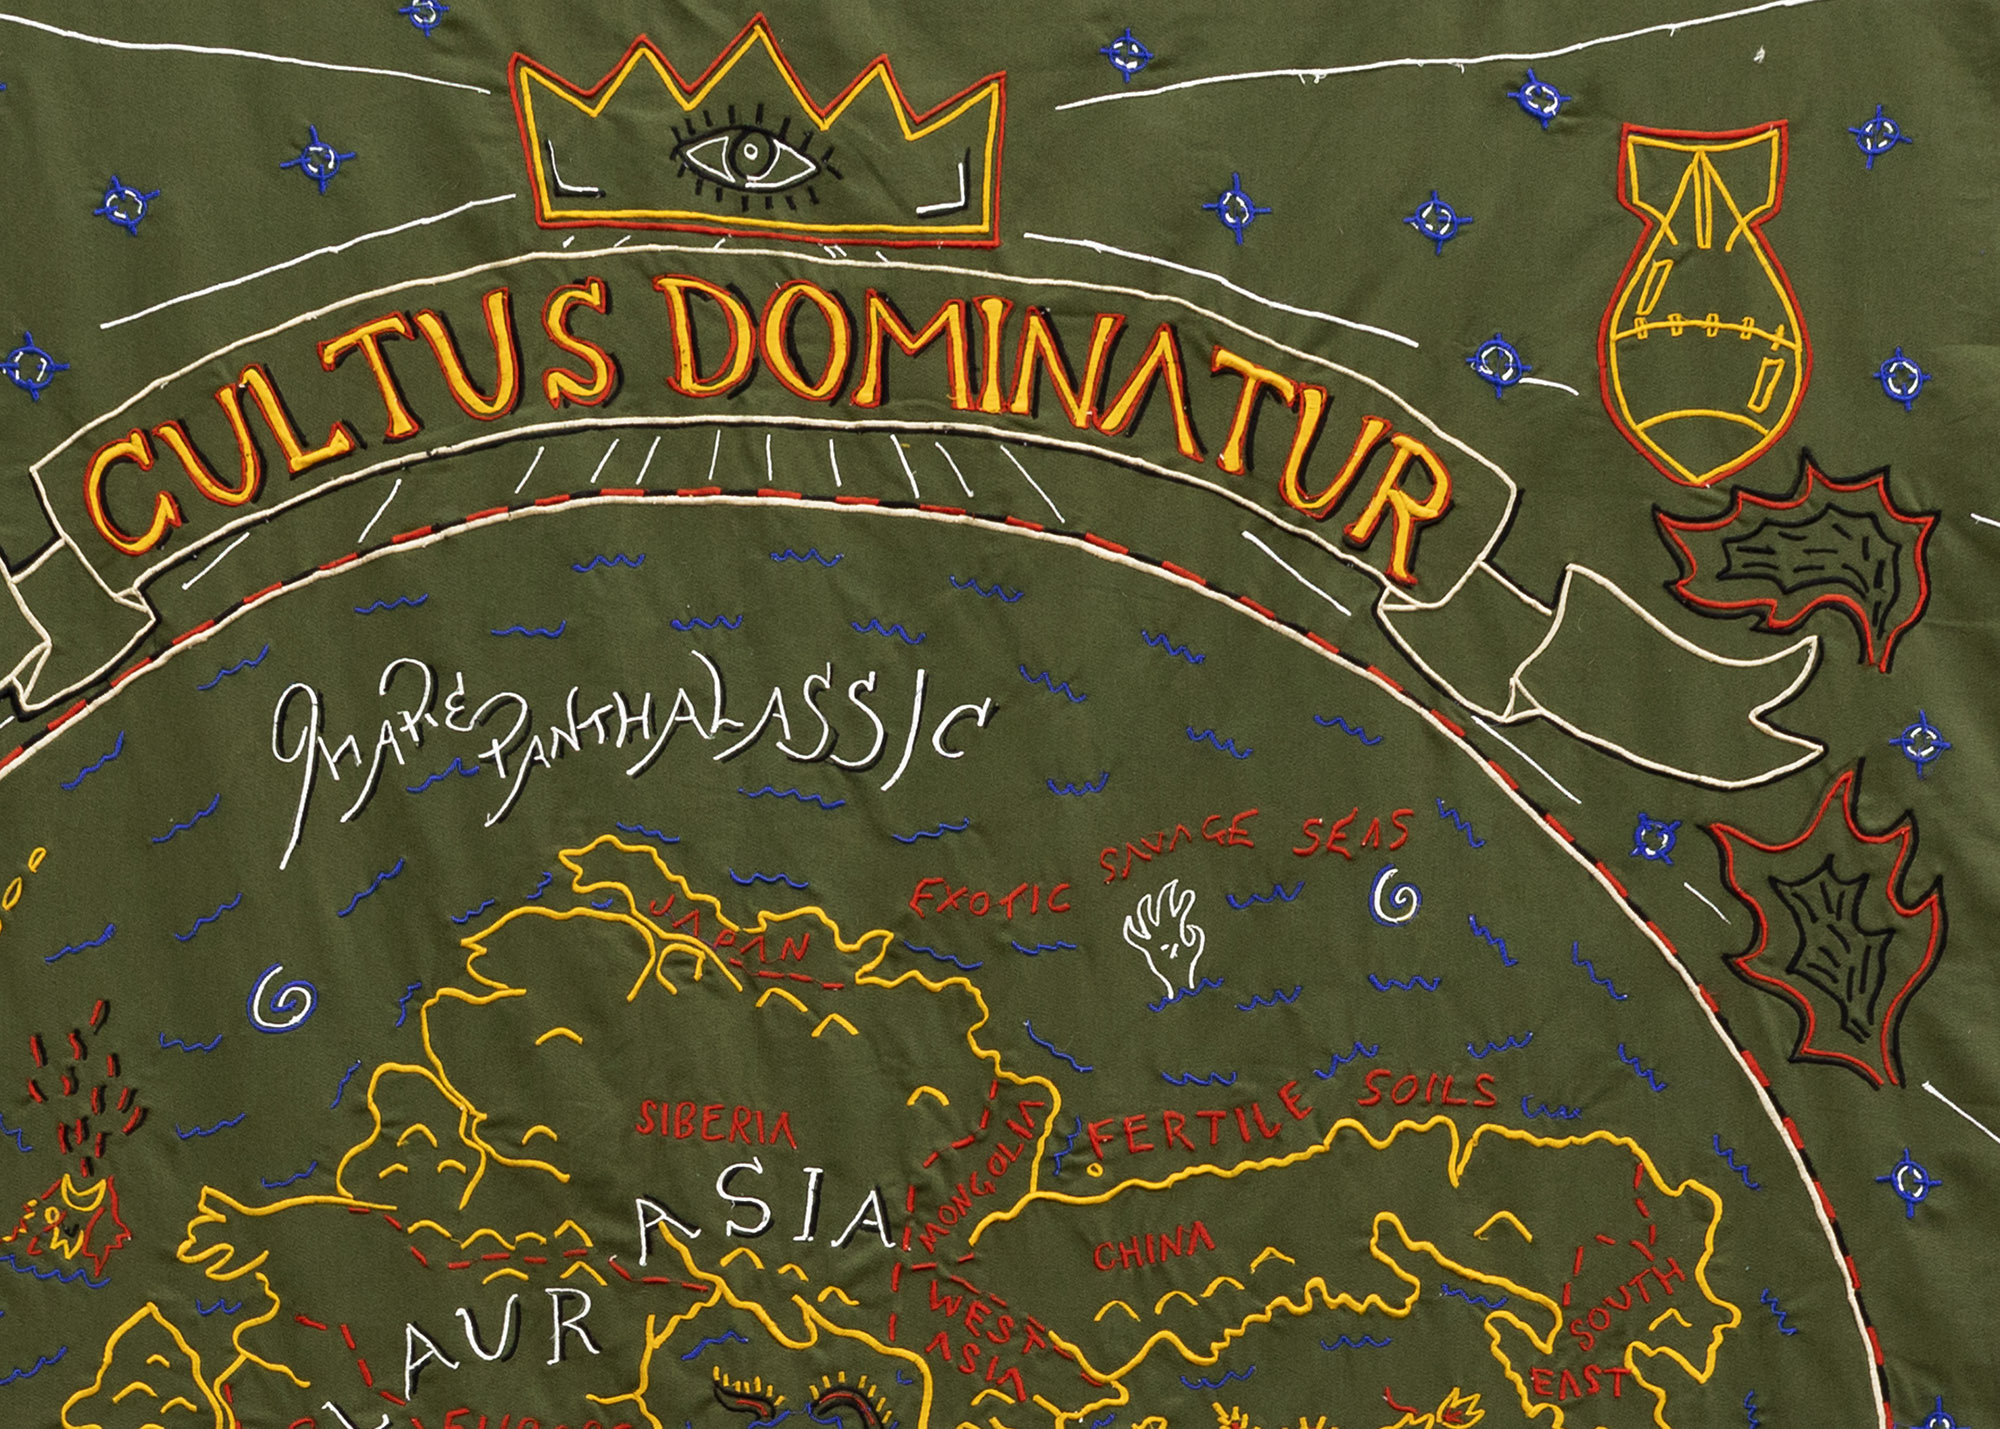 CULTUS DOMINATUR
MARE PANTHALASSIC
EXOTIC SAVAGE SEAS
JAPAN
SIBERIA
MONGOLIA
FERTILE SOILS
ASIA
CHINA
WEST
ASIA
SOUTH
EAST
AUR
EUROPE